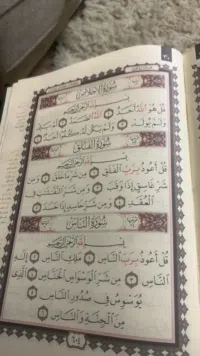 سُورَةُ الإِخْلَاصِ
بِسْمِ اللَّهِ الرَّحْمَٰنِ الرَّحِيمِ
قُلْ هُوَ اللَّهُ أَحَدٌ ١ اللَّهُ الصَّمَدُ ٢ لَمْ يَلِدْ
وَلَمْ يُولَدْ ٣ وَلَمْ يَكُن لَّهُ كُفُوًا أَحَدٌ ٤
سُورَةُ الفَلَقِ
بِسْمِ اللَّهِ الرَّحْمَٰنِ الرَّحِيمِ
قُلْ أَعُوذُ بِرَبِّ الْفَلَقِ ١ مِن شَرِّ مَا خَلَقَ ٢ وَمِن
شَرِّ غَاسِقٍ إِذَا وَقَبَ ٣ وَمِن شَرِّ النَّفَّاثَاتِ فِي
الْعُقَدِ ٤ وَمِن شَرِّ حَاسِدٍ إِذَا حَسَدَ ٥
سُورَةُ النَّاسِ
بِسْمِ اللَّهِ الرَّحْمَٰنِ الرَّحِيمِ
قُلْ أَعُوذُ بِرَبِّ النَّاسِ ١ مَلِكِ النَّاسِ ٢ إِلَٰهِ
النَّاسِ ٣ مِن شَرِّ الْوَسْوَاسِ الْخَنَّاسِ ٤ الَّذِي
يُوَسْوِسُ فِي صُدُورِ النَّاسِ ٥
مِنَ الْجِنَّةِ وَالنَّاسِ ٦
٦٠٤